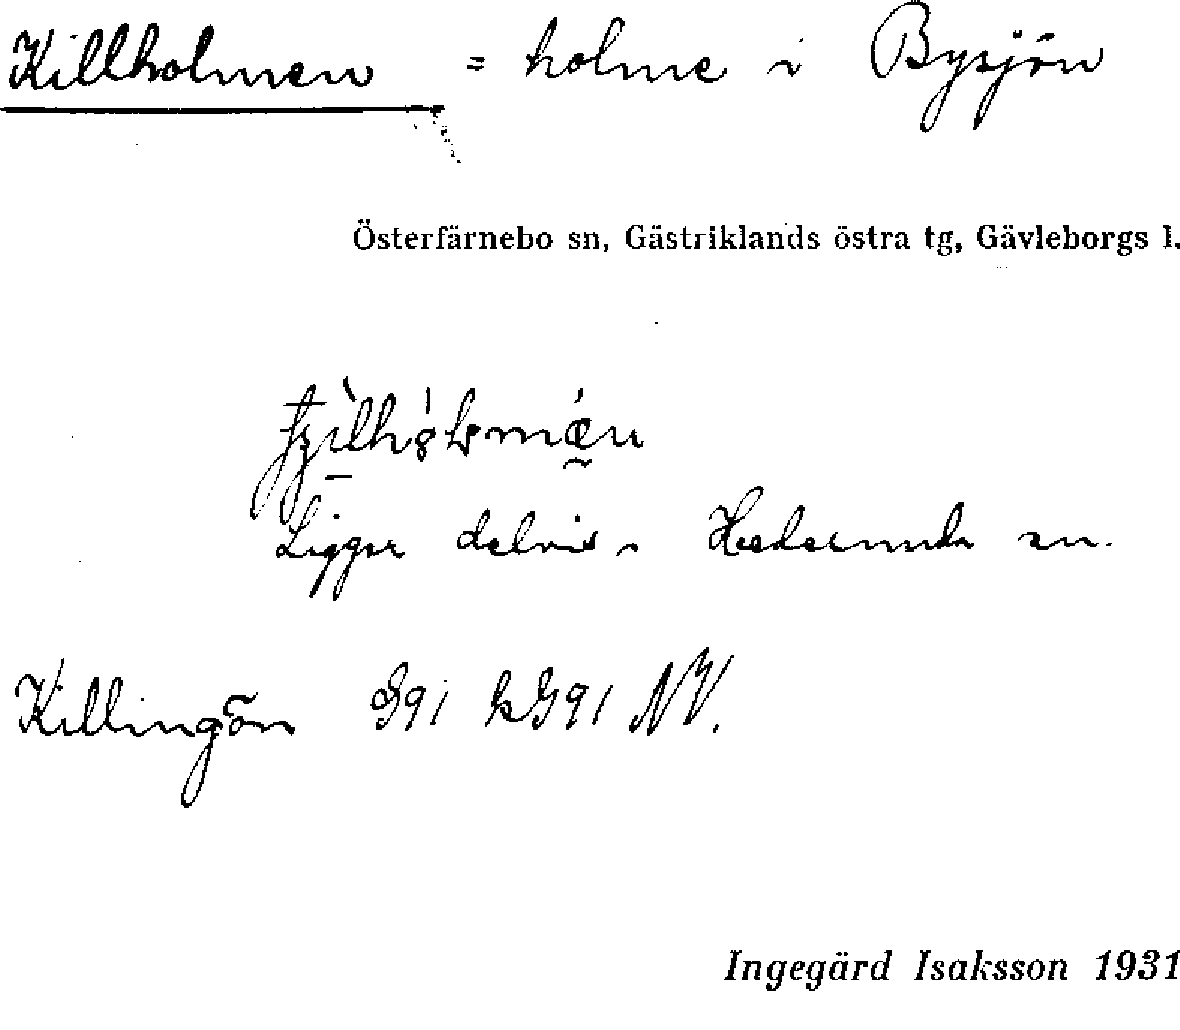 Killholmen = holme i Bysjön
Österfärnebo sn, Gästriklands östra tg, Gävleborgs l.
Ligger delvis i Hedesunda sn.
Killingön G91 kG91 NV.
Ingegärd Isaksson 1931